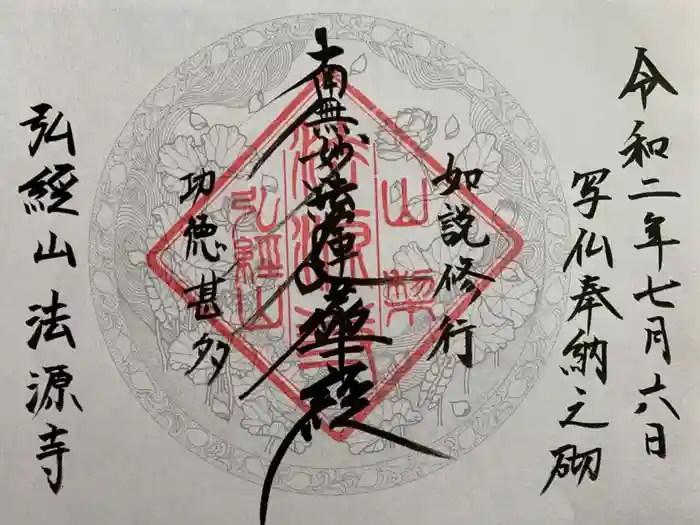 令和二年七月六日
写仏奉納之砌
如説修行
南無妙法蓮華経
功徳甚多
弘經山法源寺